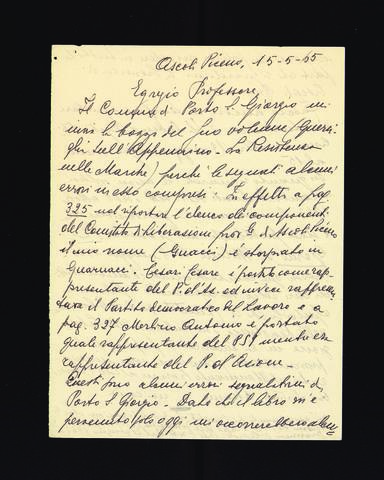 Ascoli Piceno, 15-5-65
Egregio Professore,
Il Comune di Porto S. Giorgio mi
invia le bozze del suo volume (Guerri-
glia sull'Appennino - La Resistenza
nelle Marche, perché le segnali alcuni
errori in esso compresi: In effetti a pag.
325 nel riportare l'elenco dei componenti
del Comitato di Liberazione prov. di Ascoli Piceno
il mio nome (Gnacci) è storpiato in
Guarnacci. Tesari Cesare è portato come rap-
presentante del P. d'Az. ed invece rappresen-
tava il Partito democratico del Lavoro e a
pag. 327 Merlino Antonio è portato
quale rappresentante del PSI mentre era
rappresentante del P. d'Azione.
Questi sono alcuni errori segnalatimi da
Porto S. Giorgio - Dato che il libro mi è
pervenuto solo oggi mi occorrerebbero alcuni